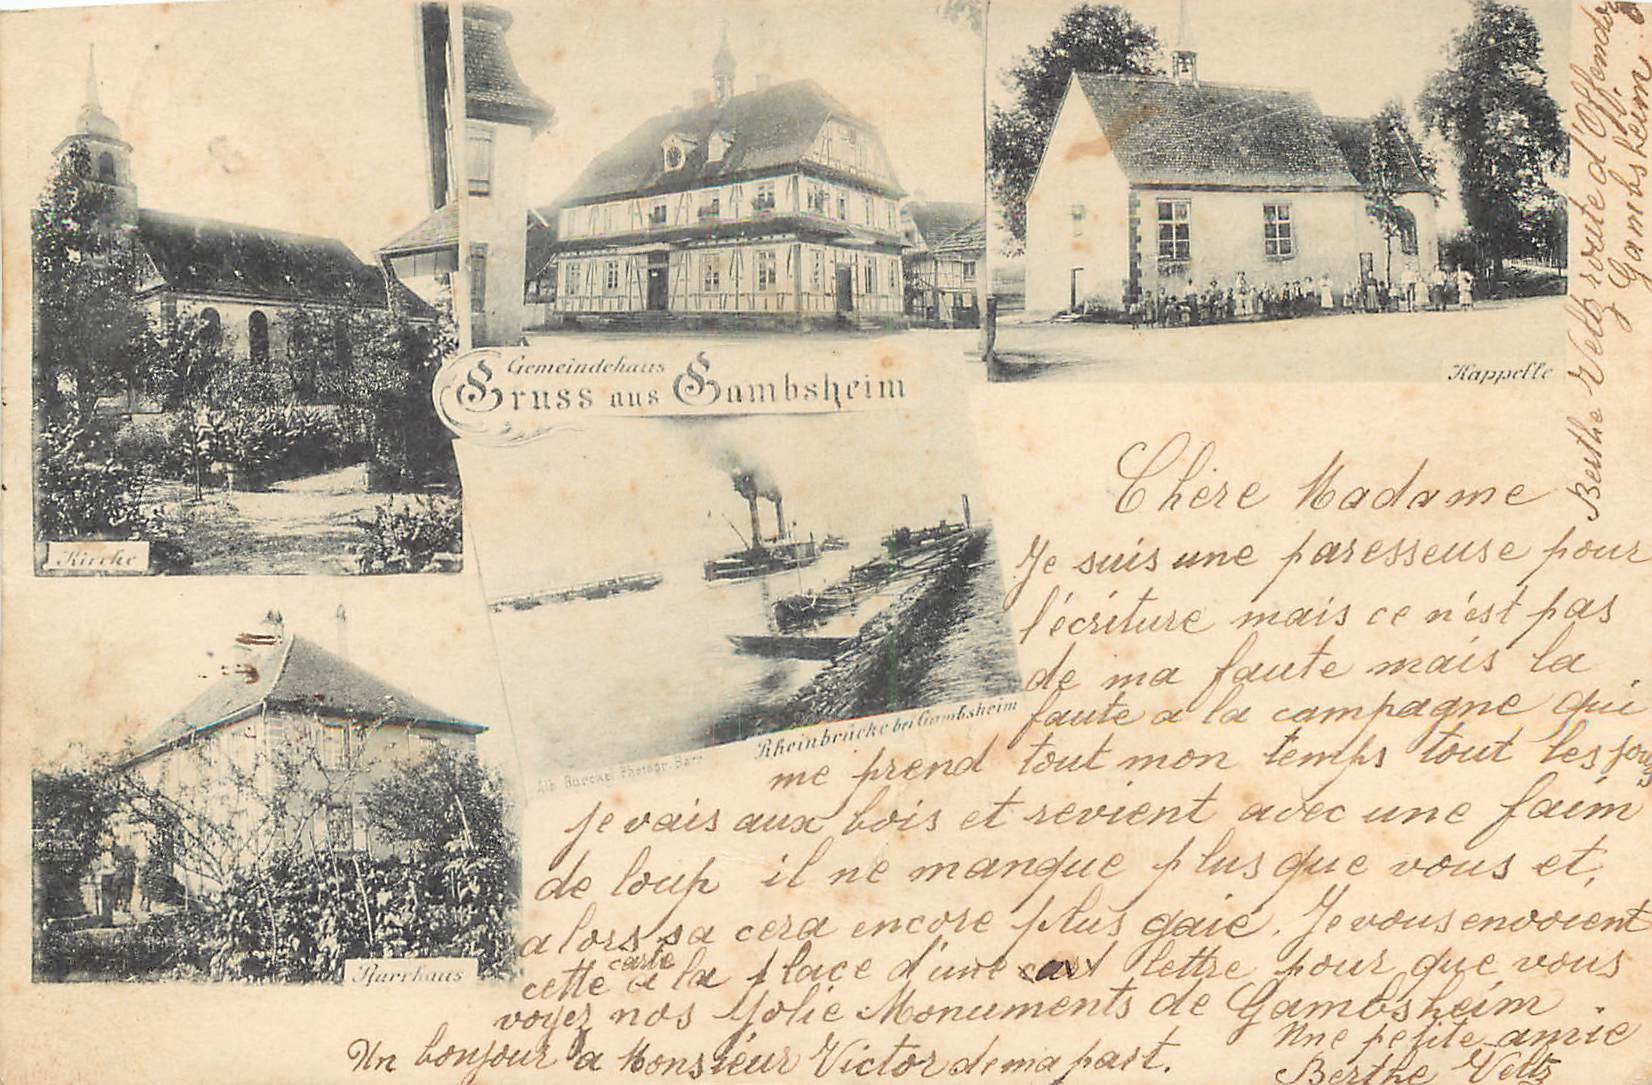 Kirche
Gemeindehaus
Gruss aus Gambsheim
Kappelle
Rheinbrücke bei Gambsheim
Alb. Photogr. Barr
Pfarrhaus
Chère Madame
Je suis une paresseuse pour
l'écriture mais ce n'est pas
de ma faute mais la
faute a la campagne qui
me prend tout mon temps tout les jours
je vais aux bois et revient avec une faim
de loup il ne manque plus que vous et,
alors sa cera encore plus gaie. Je vous envoient
cette carte a la place d'une lettre pour que vous
voyez nos Jolie Monuments de Gambsheim
Une petite amie
Un bonjour a Monsieur Victor de ma part.
Berthe Veltz
Berthe Veltz route d'Offendorf
Gambsheim